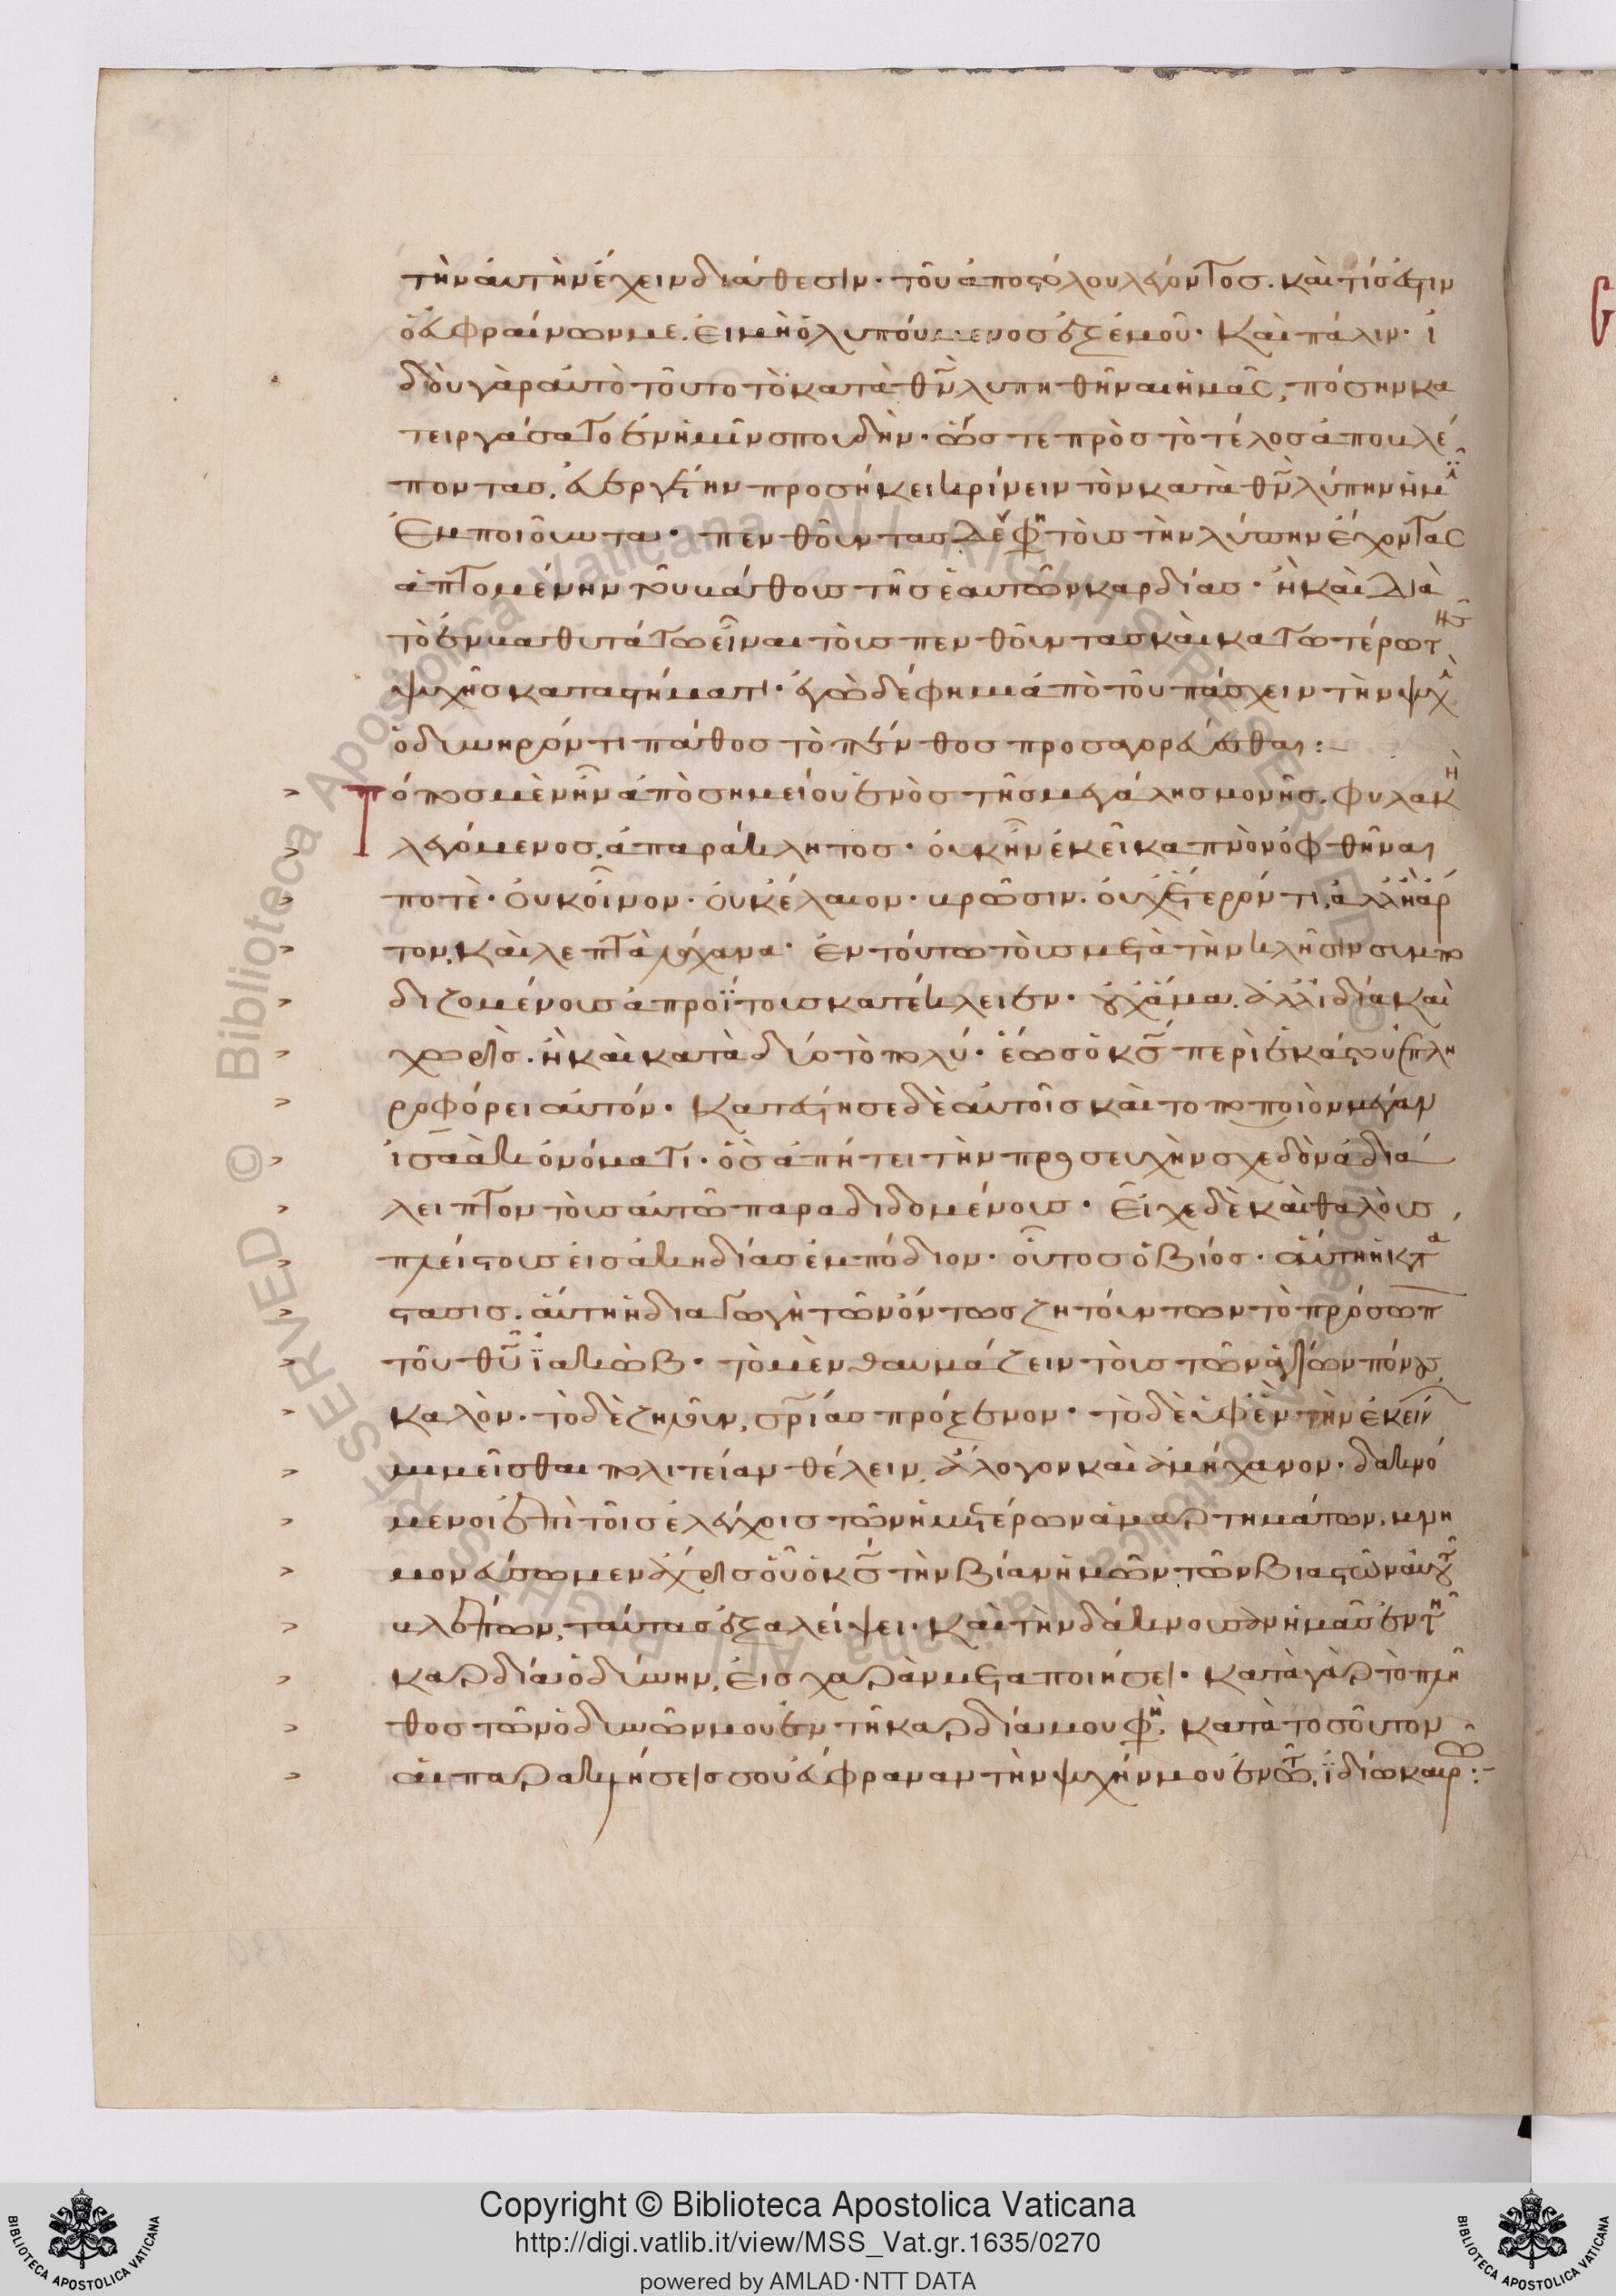 τὴν ἀυτὴν ἔχειν διάθεσιν· τοῦ ἀποστόλου λέγοντος. καὶ τίς ἐστιν
ὁ ἐυφραίνων με. ἐι μὴ ὁ λυπούμενος ἐξ ἐμοῦ· Καὶ πάλιν· ἰ
δὸυ γὰρ ἀυτὸ τοῦτο τὸ κατὰ θν̅ λυπηθῆναι ἡμᾶς, πόσην κα
τειργάσατο ἐν ἡμῖν σπουδήν· ὥστε πρὸς τὸ τέλος ἀποβλέ
ποντας, ἐυεργέτην προσήκει κρίνειν τὸν κατὰ θν̅ λύπην ἡμῖ
Ἐμποιοῦντα· πενθοῦντας δέ φη τὸυς τὴν λύπην ἔχοντας
ἁπτομένην τοῦ βάθους τῆς ἑαυτῶν καρδίας· ἢ καὶ διὰ
τὸ ἐν βαθυτάτω εἶναι τὸυς πενθοῦντας καὶ κατωτέρω τῆς
ψυχῆς καταστήματι· ἐγὼ δέ φημι ἀπὸ τοῦ πάσχειν τὴν ψυχὴ
ὀδυνηρόν τι πάθος τὸ πένθος προσαγορεύεσθαι:
Τόπος μὲν ἦν ἀπὸ σημείου ἑνὸς τῆς μεγάλης μονῆς. φυλακὴ
λεγόμενος, ἀπαράκλητος· ὀυκ ἦν ἐκεῖ καπνὸν ὀφθῆναι
ποτὲ· ὀυκ οἶνον· ὀυκ ἔλαιον· βρῶσιν. ὀυχ ἕτερόν τι, ἀλλ' ἢ ἄρ
τον, καὶ λεπτὰ λάχανα· ἐν τούτω τὸυς μετὰ τὴν κλῆσιν συμπο
διζομένους ἀπροΐτους κατέκλειεν· ὀυχ ἅμα. ἀλλ' ἰδία καὶ
χωρὶς. ἢ καὶ κατὰ δύο τὸ πολύ· ἕως ὁ κς̅ περὶ ἑκάστου ἐπλη
ροφόρει αὐτόν· Κατέστησε δὲ ἀυτοῖς καὶ τοποποιὸν μέγαν
ἰσαὰκ ὀνόματι· ὃς ἀπήτει τὴν προσευχὴν σχεδὸν ἀδιά
λειπτον τὸυς ἀυτῶ παραδιδομένους· Εἶχε δὲ καὶ θαλὸυς
πλείστους ἐις ἀκηδίας ἐμπόδιον· οὗτος ὁ βίος· ἅυτη ἡ κατά
στασις. ἅυτη ἡ διαγωγὴ τῶν ὄντως ζητούντων τὸ πρόσωπ
τοῦ θυ̅ ϊακὼβ· τὸ μὲν θαυμάζειν τὸυς τῶν ἁγίων πόνους,
καλὸν· τὸ δὲ ζηλοῦν, σρίας πρόξενον· τὸ δὲ ὑφὲν τὴν ἐκείν
μιμεῖσθαι πολιτείαν θέλειν, ἄλογον καὶ ἀμήχανον· δακνό
μενοι ἐπὶ τοῖς ἐλέγχοις τῶν ἡμετέρων ἁμαρτημάτων, μνη
μονεύσωμεν ἄχρις οὗ ὁ κς̅ τὴν βίαν ἡμῶν τῶν βιαστῶν ἀυτοῦ
βλέπων, ταύτας ἐξαλείψει. καὶ τὴν δάκνουσαν ἡμᾶς ἐν τῆ
καρδία ὀδύνην, ἐις χαρὰν μεταποιήσει· κατὰ γὰρ τὸ πλῆ
θος τῶν ὀδυνῶν μου ἐν τῆ καρδία μου φη, κατὰ τοσοῦτον
ἁι παρακλήσεις σου ἔυφραναν τὴν ψυχήν μου ἐν τῶ ϊδίω καιρῶ:
Copyright © Biblioteca Apostolica Vaticana
http://digi.vatlib.it/view/MSS_Vat.gr.1635/0270
powered by AMLAD·NTT DATA